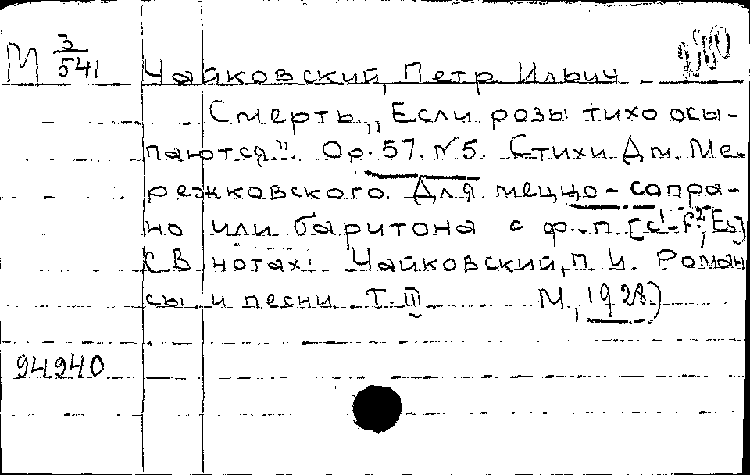 М 3/541
Чайковский, Петр Ильич
Смерть „Если розы тихо осы-
паются". Op. 57. N 5. Стихи Дм. Ме-
режковского. Для меццо-сопра-
но или баритона с ф.-п. [c¹-f², Es]
(В нотах: Чайковский, П. И. Роман
сы и песни. Т. III М., 1928.)
94940